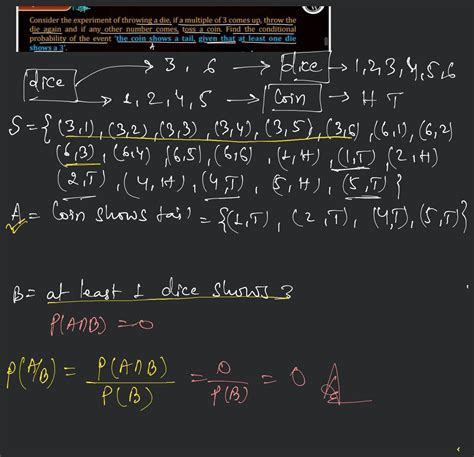 Consider the experiment of throwing a die, if a multiple of 3 comes up, throw the
die again and if any other number comes, toss a coin. Find the conditional
probability of the event 'the coin shows a tail, given that at least one die
shows a 3'.
A
dice → 3, 6 → dice → 1,2,3,4,5,6
→ 1, 2, 4, 5 → Coin → H T
S = { (3,1), (3,2), (3,3), (3,4), (3,5), (3,6), (6,1), (6,2)
(6,3), (6,4), (6,5), (6,6), (1,H), (1,T), (2,H)
(2,T), (4,H), (4,T), (5,H), (5,T) }
A = Coin shows tail = {(1,T), (2,T), (4,T), (5,T)}
B = at least 1 dice shows 3
P(A∩B) = 0
P(A/B) = P(A∩B) / P(B) = 0 / P(B) = 0